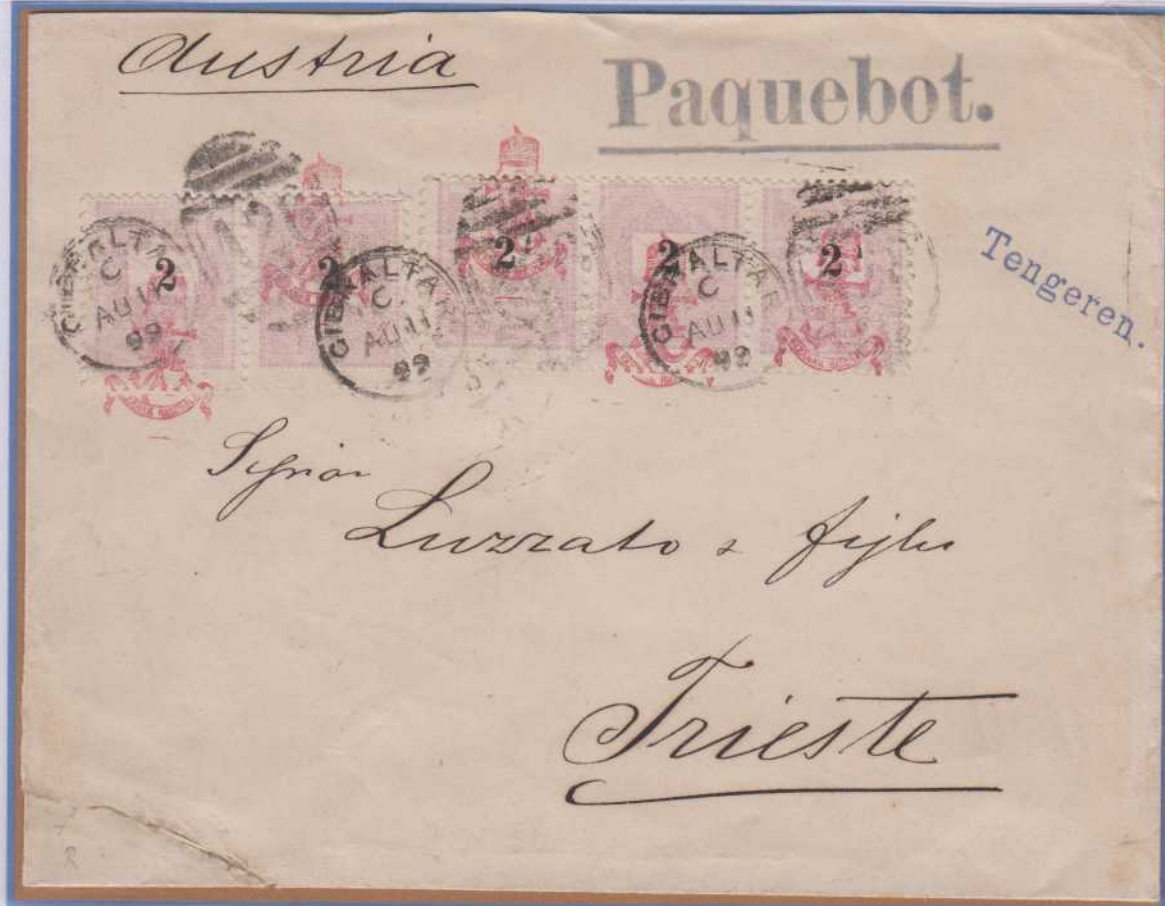 Austria
Paquebot.
Tengeren.
2 2 2 2 2
GIBRALTAR
C
AU 11
99
GIBRALTAR
C
AU 11
99
GIBRALTAR
C
AU 11
99
Signor
Luzzato & figlii
Trieste